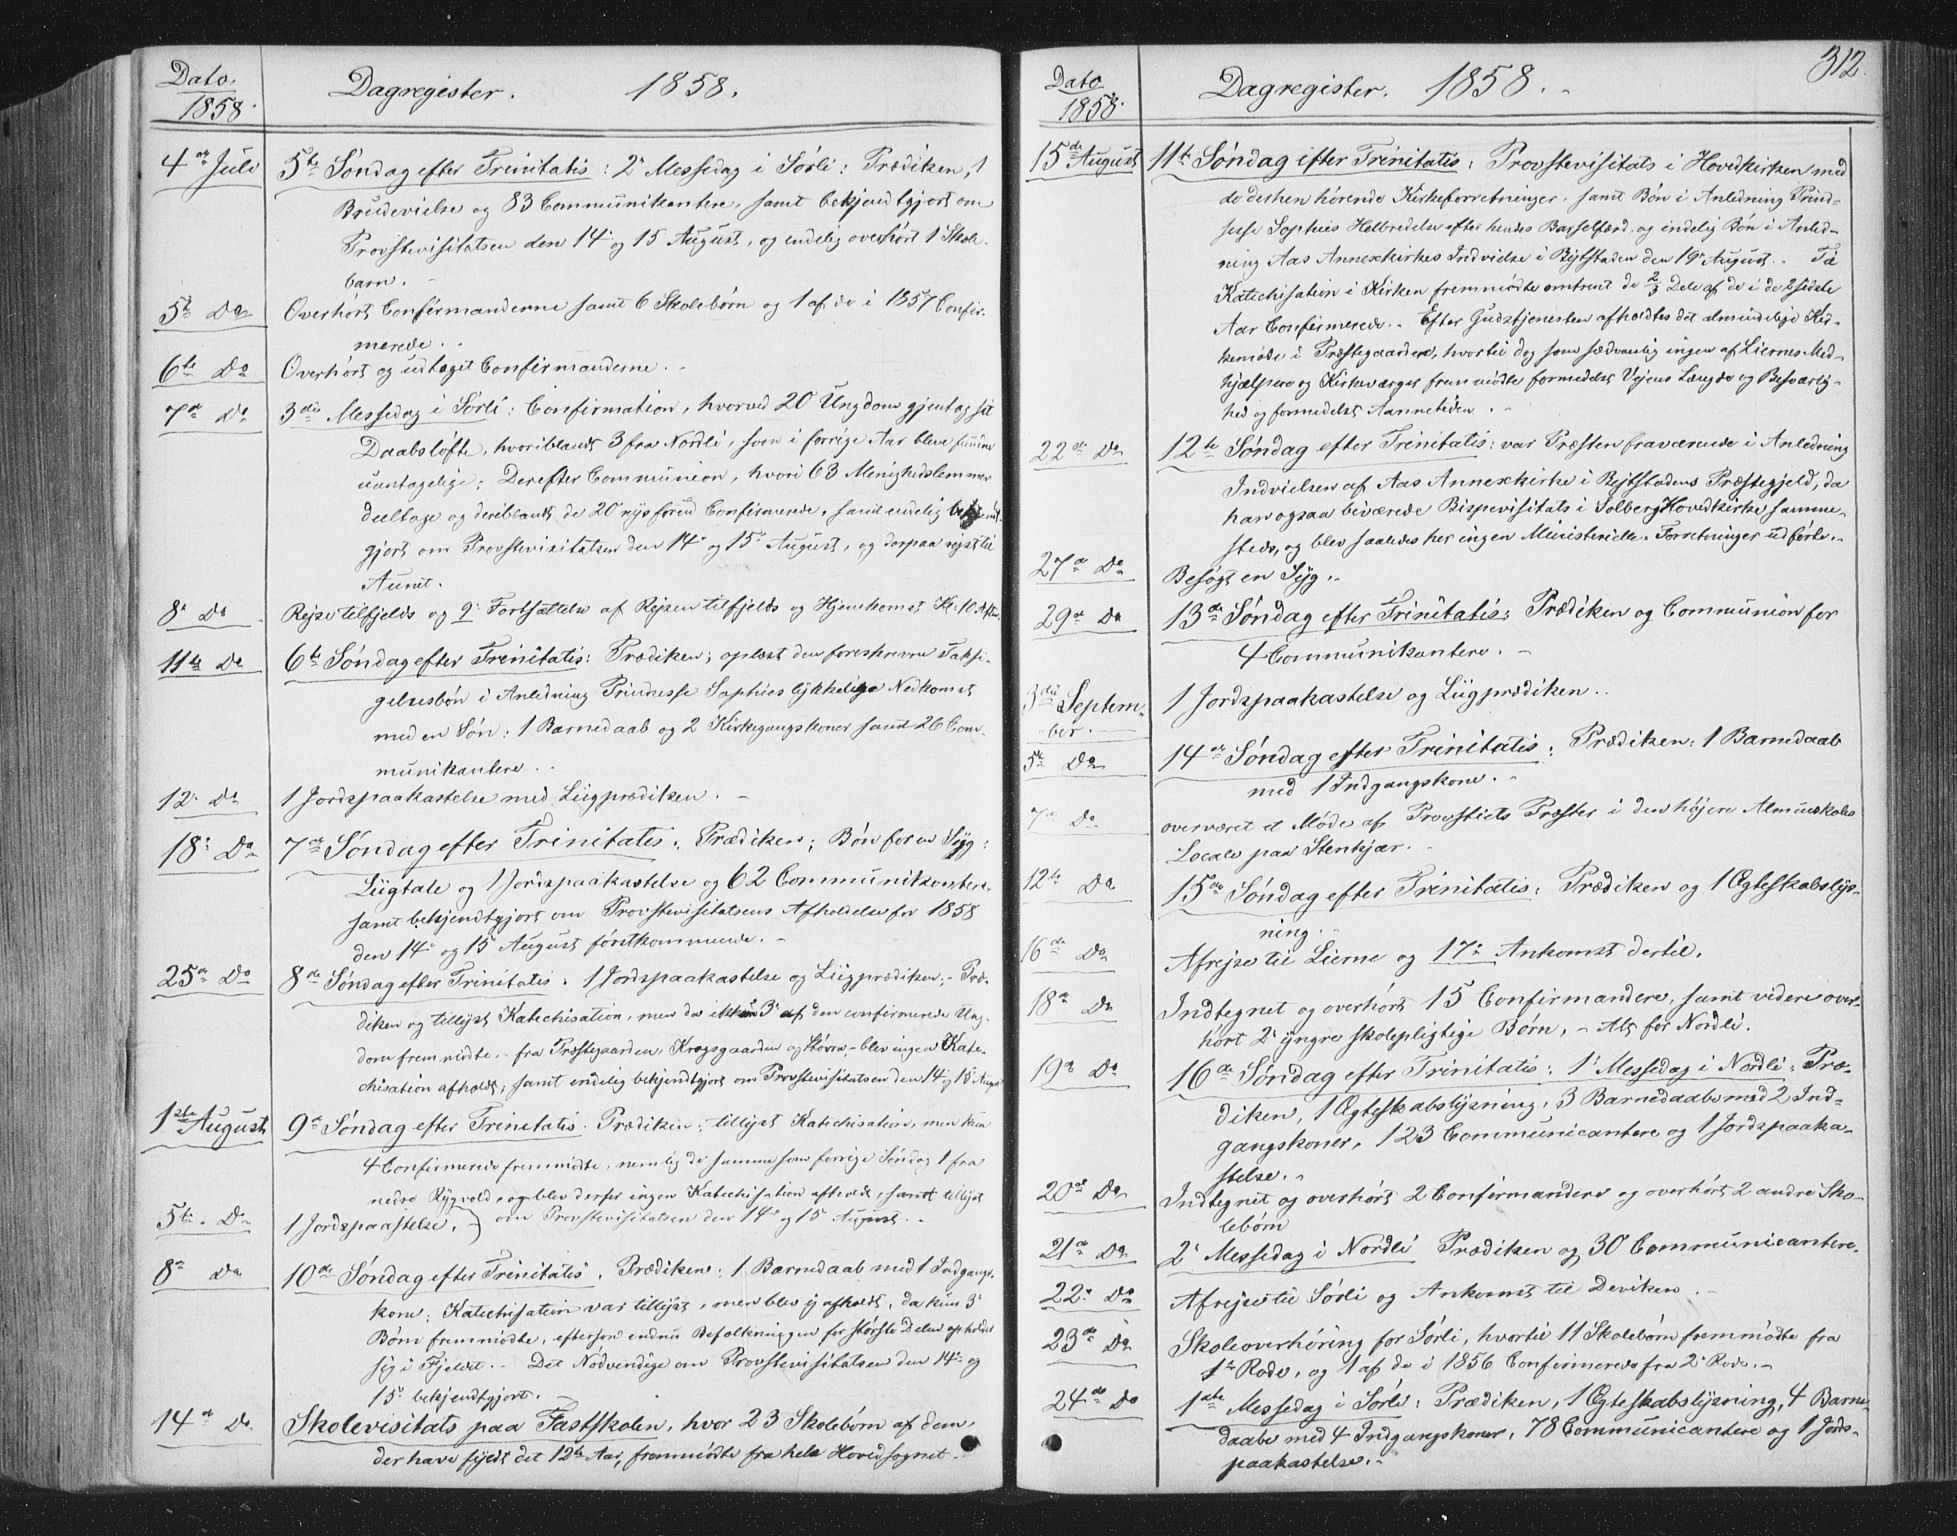 Dato.
1858.
Dagregister. 1858.
4de Juli
5te Søndag efter Trinitatis: 2' Messedag i Sørli: Prædiken, 1
Brudevielse og 83 Communikantere, samt bekjendtgjort om
Provstevisitatsen den 14' og 15 August, og endelig overhørt 1 Skole-
barn. -
5te Do
Overhørt Confirmanderne samt 6 Skolebørn og 1 af de i 1857 Confir-
merede. -
6te Do
Overhørt og udtaget Confirmanderne. -
7de Do
3die Messedag i Sørli: Confirmation, hvorved 20 Ungdom gjentog sit
Daabsløfte, hvoriblandt 3 fra Nordli, som i forrige Aar bleve fundne
uantagelige; Derefter Communion, hvori 63 Menighedslemmer
deeltoge og deriblandt de 20 nysforud Confirmerede, samt endelig bekjendt-
gjort om Provstevisitatsen den 14' og 15' August, og derpaa rejst til
Aunet.
8' Do
Rejse tilfjelds og 9' Fortsættelse af Rejsen tilfjelds og Hjemkomst Kl. 10 Aften.
11te Do
6te Søndag efter Trinitatis: Prædiken; oplæst den foreskrevne Taksi-
gelsesbøn i Anledning Prindsesse Sophies lykkelige Nedkomst
med en Søn: 1 Barnedaab og 2 Kirkegangskoner samt 26 Com-
munikantere. -
12' Do
1 Jordspaakastelse med Liigprædiken. -
18' Do
7de Søndag efter Trinitatis: Prædiken; Bøn for en Syg;
Liigtale og 1 Jordspaakastelse og 62 Communikantere,
samt bekjendtgjort om Provstevisitatsens Afholdelse for 1858
den 14' og 15' August førstkommende. -
25de Do
8de Søndag efter Trinitatis. 1 Jordspaakastelse og Liigprædiken; - Præ-
diken og tillyst Katechisation, men da ikkun 3' af den confirmerede Ung-
dom fremmødte, - fra Præstegaarden, Krogsgaarden og Støvra, - blev ingen Kate-
chisation afholdt; samt endelig bekjendtgjort om Provstevisitatsen den 14' og 15' August
1ste August
9de Søndag efter Trinitatis. Prædiken; tillyst Katechisation, men kun
4 Confirmerede fremmødte, nemlig de samme som forrige Søndag 1 fra
nedre Rygvold, og blev derfor ingen Katechisation afholdt, samt tillyst
om Provstevisitatsen den 14' og 15' August. -
5te Do
1 Jordspaastelse. -
8de Do
10de Søndag efter Trinitatis. Prædiken; 1 Barnedaab med 1 Indgangs-
kone; Katechisation var tillyst, men blev ej afholdt, da kun 3'
Børn fremmødte, eftersom endnu Befolkningen for største Delen opholdt
sig i Fjeldet. - Det Nødvendige om Provstevisitatsen den 14' og
15' bekjendtgjort. -
14de Do
Skolevisitats paa Fastskolen, hvor 23 Skolebørn af dem,
der have fyldt det 12te Aar, fremmødte fra hele Hovedsognet. -
312.
Dato
1858.
Dagregister. 1858. -
15de August
11te Søndag efter Trinitatis: Provstevisitats i Hovedkirken med
de derhen hørende Kirkeforretninger, samt Bøn i Anledning Prind-
sesse Sophies Helbredelse efter hendes Barselfærd, og endelig Bøn i Anled-
ning Aas Annexkirkes Indvielse i Bejtstaden den 19' August. Til
Katechisation i Kirken fremmødte omtrent de 2/3 Dele af de i de 2 sidste
Aar Confirmerede. - Efter Gudstjenesten afholdtes det almindelige Kir-
kemøde i Præstegaarden, hvortil dog som sædvanlig ingen af Liernes Med-
hjælpere og Kirkeværger fremmødte formedelst Vejens Længde og Besværlig-
hed og formedelst Aannetiden. -
22de Do
12te Søndag efter Trinitatis: var Præsten fraværende i Anledning
Indvielsen af Aas Annexkirke i Bejtstadens Præstegjeld, da
han ogsaa biværede Bispevisitats i Solberg Hovedkirke samme-
steds, og blev saaledes her ingen Ministerielle Forretninger udførte. -
27de Do
Besøgt en Syg. -
29de Do
13de Søndag efter Trinitatis: Prædiken og Communion for
4 Communikantere. -
3die Septem-
ber. -
1 Jordspaakastelse og Liigprædiken. -
5te Do
14de Søndag efter Trinitatis: Prædiken: 1 Barnedaab
med 1 Indgangskone. -
7de Do
overværet et Møde af Provstiets Præster i den højere Almueskoles
Locale paa Stenkjær. -
12te Do
15de Søndag efter Trinitatis: Prædiken og 1 Ægteskabslys-
ning. -
16de Do
Afrejse til Lierne og 17' Ankomst dertil.
18de Do
Indtegnet og overhørt 15 Confirmandere, samt videre over-
hørt 2' yngre skolepligtige Børn, - Alt for Nordli.
19de Do
16de Søndag efter Trinitatis: 1' Messedag i Nordli: Præ-
diken, 1 Ægteskabslysning, 3 Barnedaabe med 2 Ind-
gangskoner, 123 Communicantere og 1 Jordspaaka-
stelse. -
20de Do
Indtegnet og overhørt 2 Confirmandere og overhørt 2 andre Sko-
lebørn
21de Do
2' Messedag i Nordli Prædiken og 30 Communicantere.
22' Do
Afrejse til Sørli og Ankomst til Deviken. -
23de Do
Skoleoverhøring for Sørli, hvortil 11 Skolebørn fremmødte fra
1te Rode, og 1 af de i 1856 Confirmerede fra 2' Rode. -
24de Do
1ste Messedag i Sørli: Prædiken, 1 Ægteskabslysning, 4 Barne-
daabe med 4 Indgangskoner, 78 Communicantere og 1 Jords-
paakastelse. -